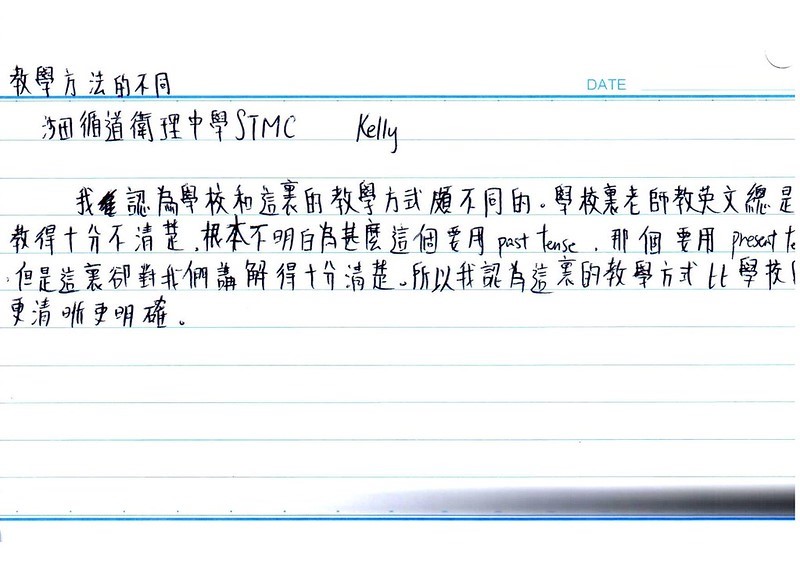 教學方法的不同
DATE
沙田循道衛理中學STMC Kelly
我認為學校和這裏的教學方式頗不同的。學校裏老師教英文總是
教得十分不清楚，根本不明白為甚麼這個要用past tense，那個要用present te
但是這裏卻對我們講解得十分清楚。所以我認為這裏的教學方式比學校
更清晰更明確。